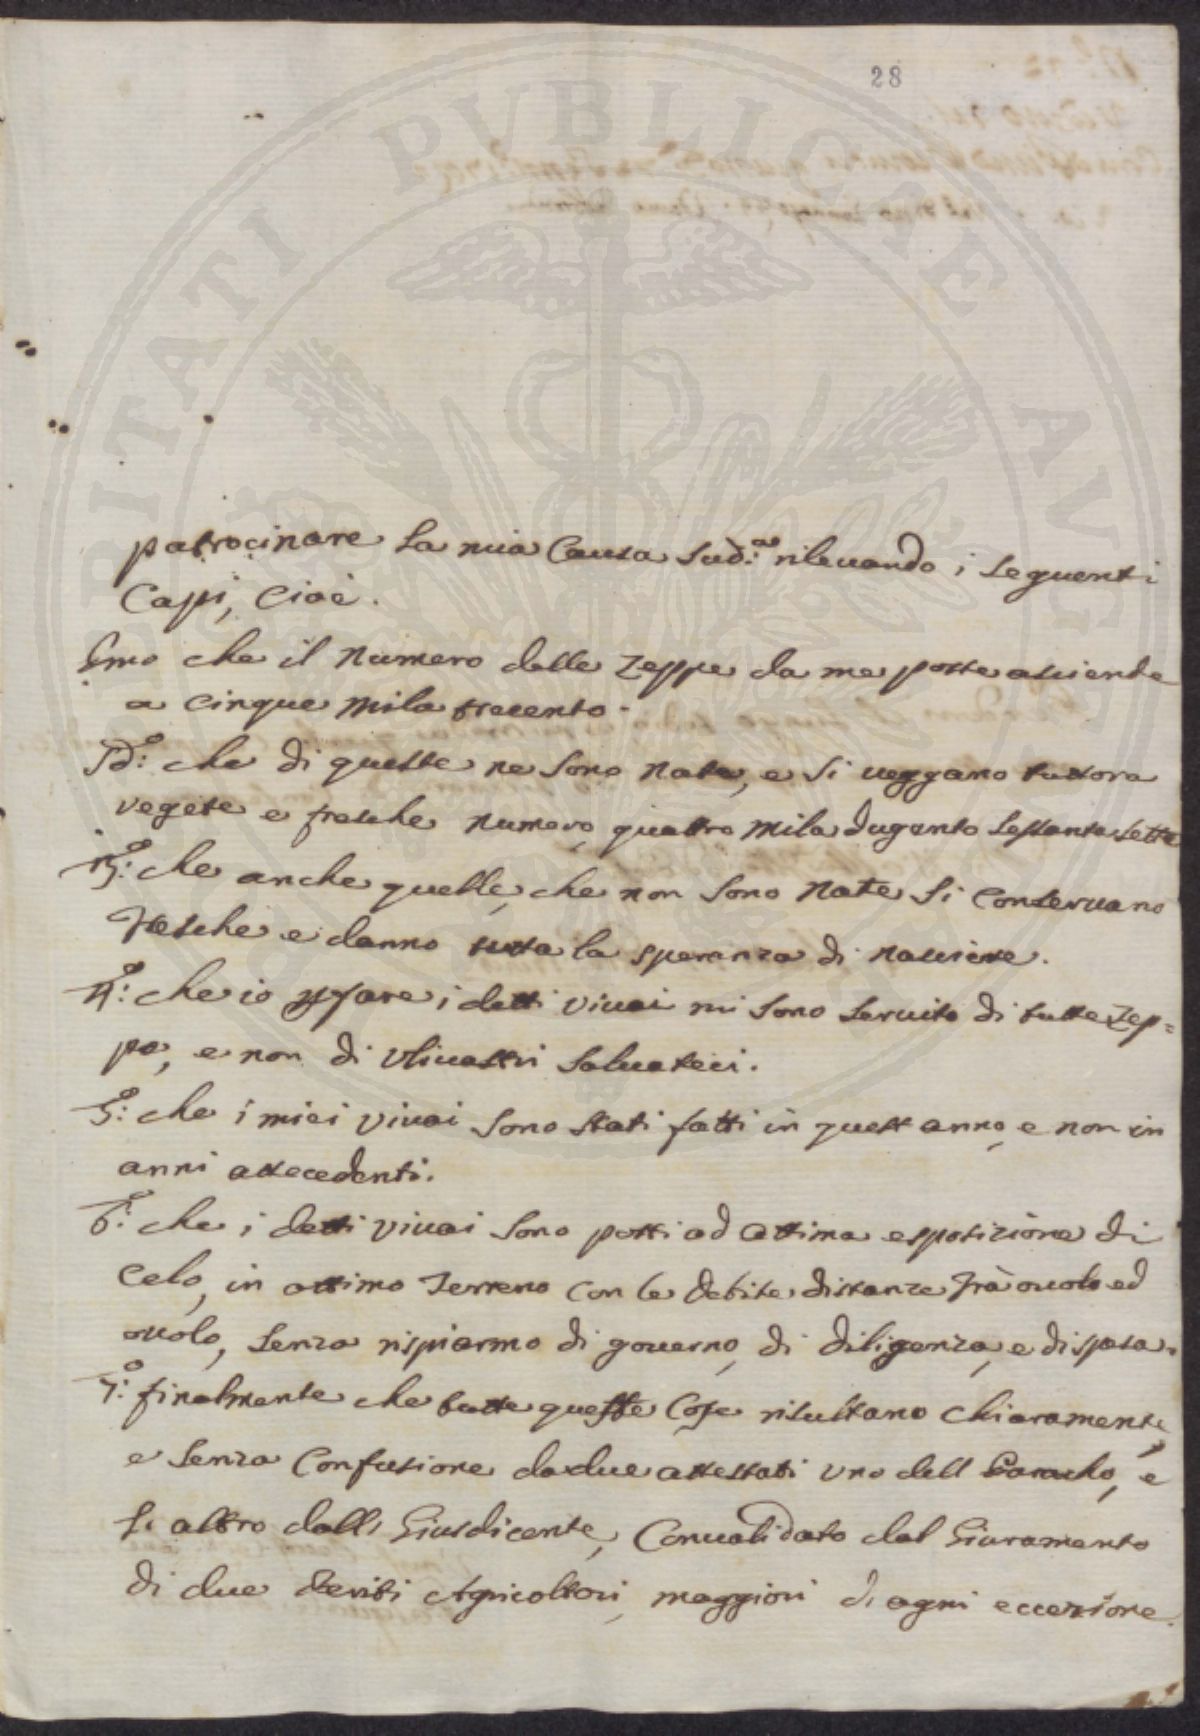 28
patrocinare la mia Causa sud:ª rilevando i seguenti
Capi, Cioè.
Pmo che il numero delle Zeppe da me poste asciende
a cinque mila trecento.
2d:º che di queste ne sono nate, e si veggano tuttora
vegete e fresche numero quattro mila dugento sessantasette
3º: che anche quelle, che non sono nate si conservano
fresche e danno tutta la speranza di nasciere.
4º: che io p fare i detti vivai mi sono servito di tutte Zep=
pe, e non di Vlivastri salvateci.
5º: che i miei vivai sono stati fatti in quest anno, e non in
anni attecedenti.
6º: che i detti vivai sono posti ad ottima esposizione di
Celo, in ottimo Terreno con le debite distanze frà ovolo ed
ovolo, senza rispiarmo di governo, di diligenza, e di spesa.
7º: finalmente che tutte queste cose risultano chiaramente,
e senza Confusione da due attestati uno dell Paracho, e
l altro dalli Giusdicente, Convalidato dal Giuramento
di due Periti Agricoltori, maggiori di ogni eccezione.
PVBLICAE AVC
RITATI